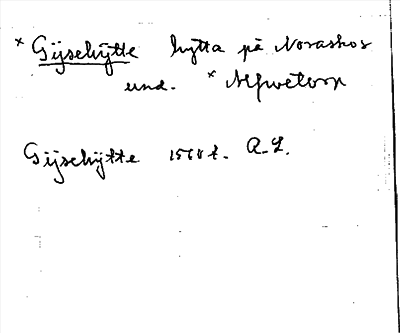 × Gijsehÿtte hytta på Noraskog
und. × Alfwetorp
Gijsehÿtte 1568 t. A.L.